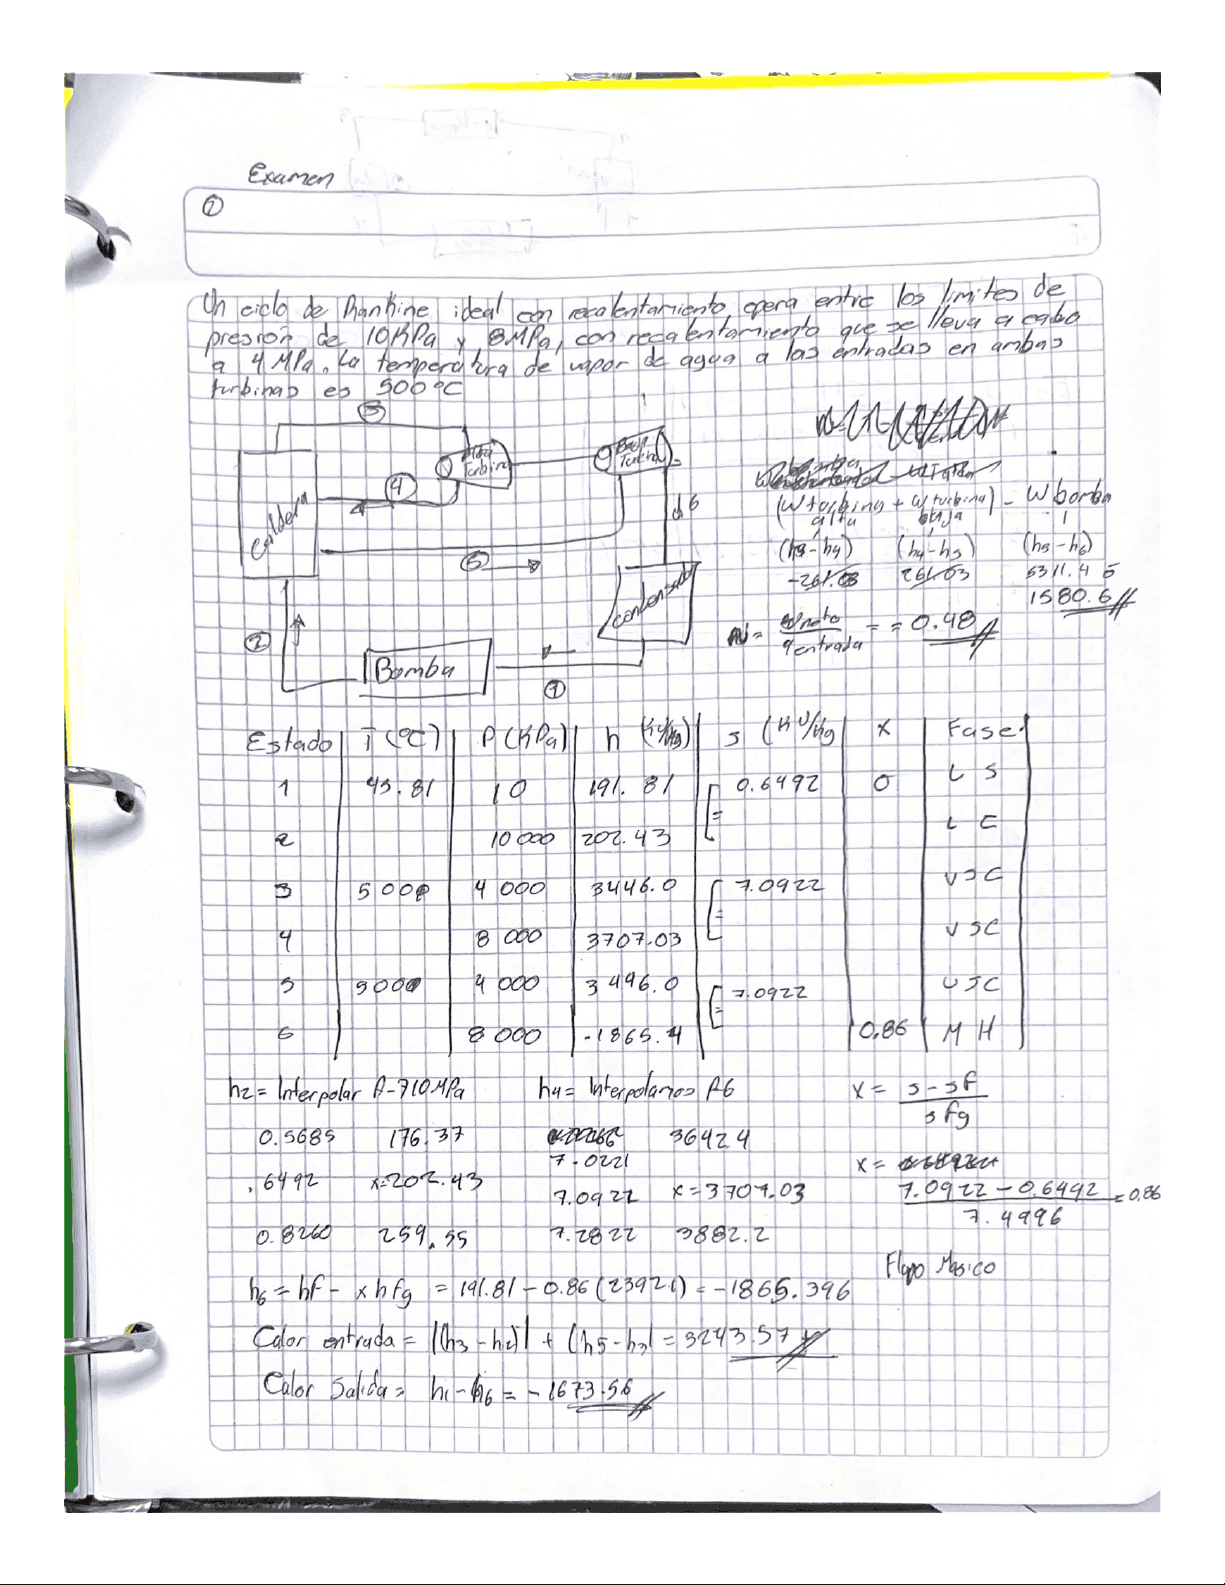 Examen
①
Un ciclo de Rankine ideal con recalentamiento, opera entre los limites de
presion de 10KPa y 8MPa, con recalentamiento que se lleva a cabo
a 4 MPa. La temperatura de vapor de agua a las entradas en ambas
turbinas es 500°C
③
Alta
Turbina
Baja
Turbina
④
Caldera
6
⑤
Condensador
②
Bomba
①
(W turbina alta + W turbina baja) - W bomba
(h3-h4) (h4-h5) (h5-h6)
-261.03 261.03 5311.4
1580.6
N = w neto / q entrada = = 0.48
Estado T(°C) P(KPa) h (KJ/Kg) s (KJ/Kg x Fase
1 45.81 10 191.81 0.6492 0 L S
2 10 000 202.43 = L C
3 500 4 000 3446.0 7.0922 VSC
4 8 000 3707.03 = VSC
5 500 4 000 3446.0 7.0922 VSC
6 8 000 -1865.4 = 0.86 M H
h2 = Interpolar A-7 10MPa h4 = Interpolamos A6 x = s-sf / sfg
0.5685 176.37 3642.4
7.0221 x =
.6492 x=202.43 7.0922 x=3707.03 7.0922 - 0.6492 / 7.4996 = 0.86
0.8260 259.55 7.2822 3882.2
Flujo Masico
h6 = hf - xhfg = 191.81 - 0.86 (2392.1) = -1865.396
Calor entrada = |(h3-h2)| + (h5-h3| = 3243.57
Calor Salida = h1-h6 = -1673.56